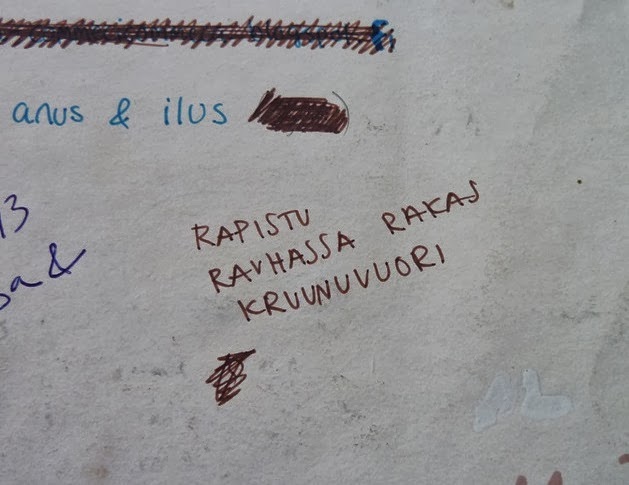 anus & ilus
13
a &
RAPISTU
RAUHASSA RAKAS
KRUUNUVUORI
AL